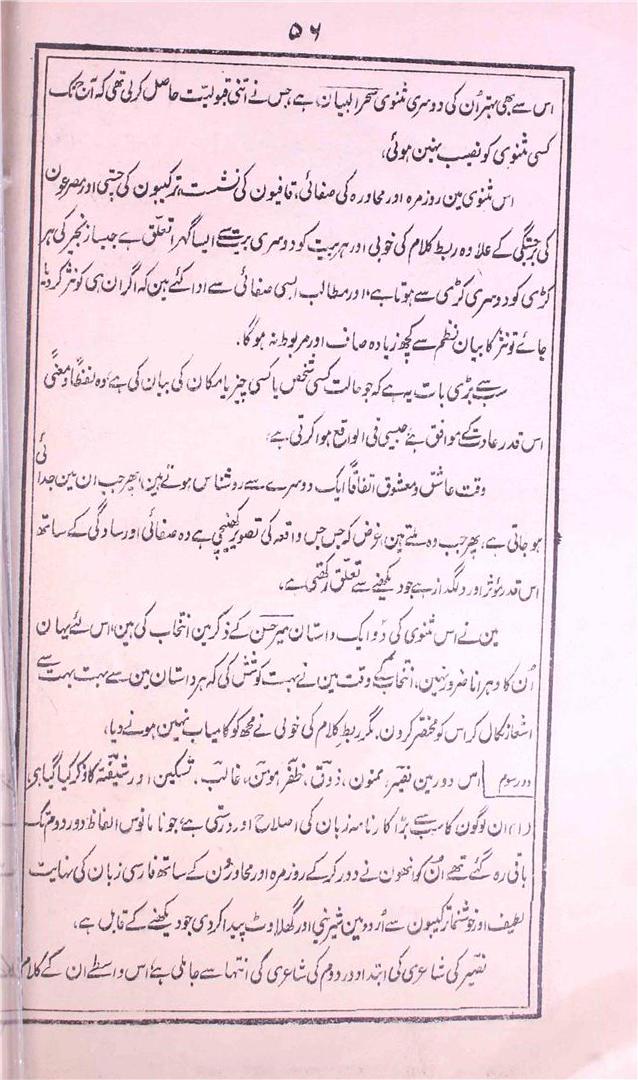 ۵۶
اس سے بھی بہتر اُن کی دوسری مثنوی سحر البیان، ہے جس نے اتنی قبولیت حاصل کر لی تھی کہ آج تک
کسی مثنوی کو نصیب نہین ہوئی،
اس مثنوی مین روزمرہ اور محاورہ کی صفائی، قافیون کی نشست، ترکیبون کی چستی اور مصرعون
کی برجستگی کے علاوہ ربط کلام کی خوبی اور ہر بیت کو دوسری بیت سے ایسا گہرا تعلق ہے جیسا زنجیر کی ہر
کڑی کو دوسری کڑی سے ہوتا ہے، اور مطالب ایسی صفائی سے ادا کئے ہین کہ اگر ان ہی کو نثر کر دیا
جائے تو نثر کا بیان نظم سے کچھ زیادہ صاف اور مربوط نہ ہو گا۔
سب سے بڑی بات یہ ہے کہ جو حالت کسی شخص یا کسی چیز یا مکان کی بیان کی ہے، وہ لفظاً و معنیً
اس قدر عادت کے موافق ہے جیسی فی الواقع ہوا کرتی ہے،
وقت عاشق و معشوق اتفاقاً ایک دوسرے سے روشناس ہوتے ہین، پھر جب ان مین جدائی
ہو جاتی ہے، پھر جب وہ ملتے ہین، غرض کہ جس جس واقعہ کی تصویر کھینچی ہے وہ صفائی اور سادگی کے ساتھ
اس قدر مؤثر اور دلگداز ہے جو دیکھنے سے تعلق رکھتی ہے،
مین نے اس مثنوی کی دو ایک داستان میر حسن کے ذکر مین انتخاب کی ہین، اس لئے یہان
اُن کا دہرانا ضرور نہین، انتخاب کے وقت مین نے بہت کوشش کی کہ ہر داستان مین سے بہت بہت سے
اشعار نکال کر اس کو مختصر کرون۔ مگر ربط کلام کی خوبی نے مجھ کو کامیاب نہین ہونے دیا،
دور سوم اس دور مین نصیر، ممنون، ذوق، ظفر، مومن، غالب، تسکین، اور شیفتہ کا ذکر کیا گیا ہی
(۱) ان لوگون کا سب سے بڑا کارنامہ زبان کی اصلاح اور درستی ہے، جو نا مانوس الفاظ دور دوم تک
باقی رہ گئے تھے اُن کو انھون نے دور کر کے روزمرہ اور محاورون کے ساتھ فارسی زبان کی نہایت
لطیف اور خوشنما ترکیبون سے اُردو مین شیرینی اور گھلاوٹ پیدا کر دی جو دیکھنے کے قابل ہے،
نصیر کی شاعری کی ابتدا دور دوم کی شاعری کی انتہا سے جا ملی ہے، اس واسطے ان کے کلام